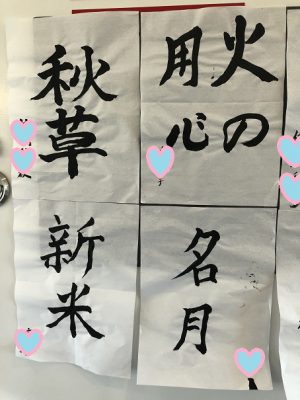 火の
用心
秋草
名月
新米